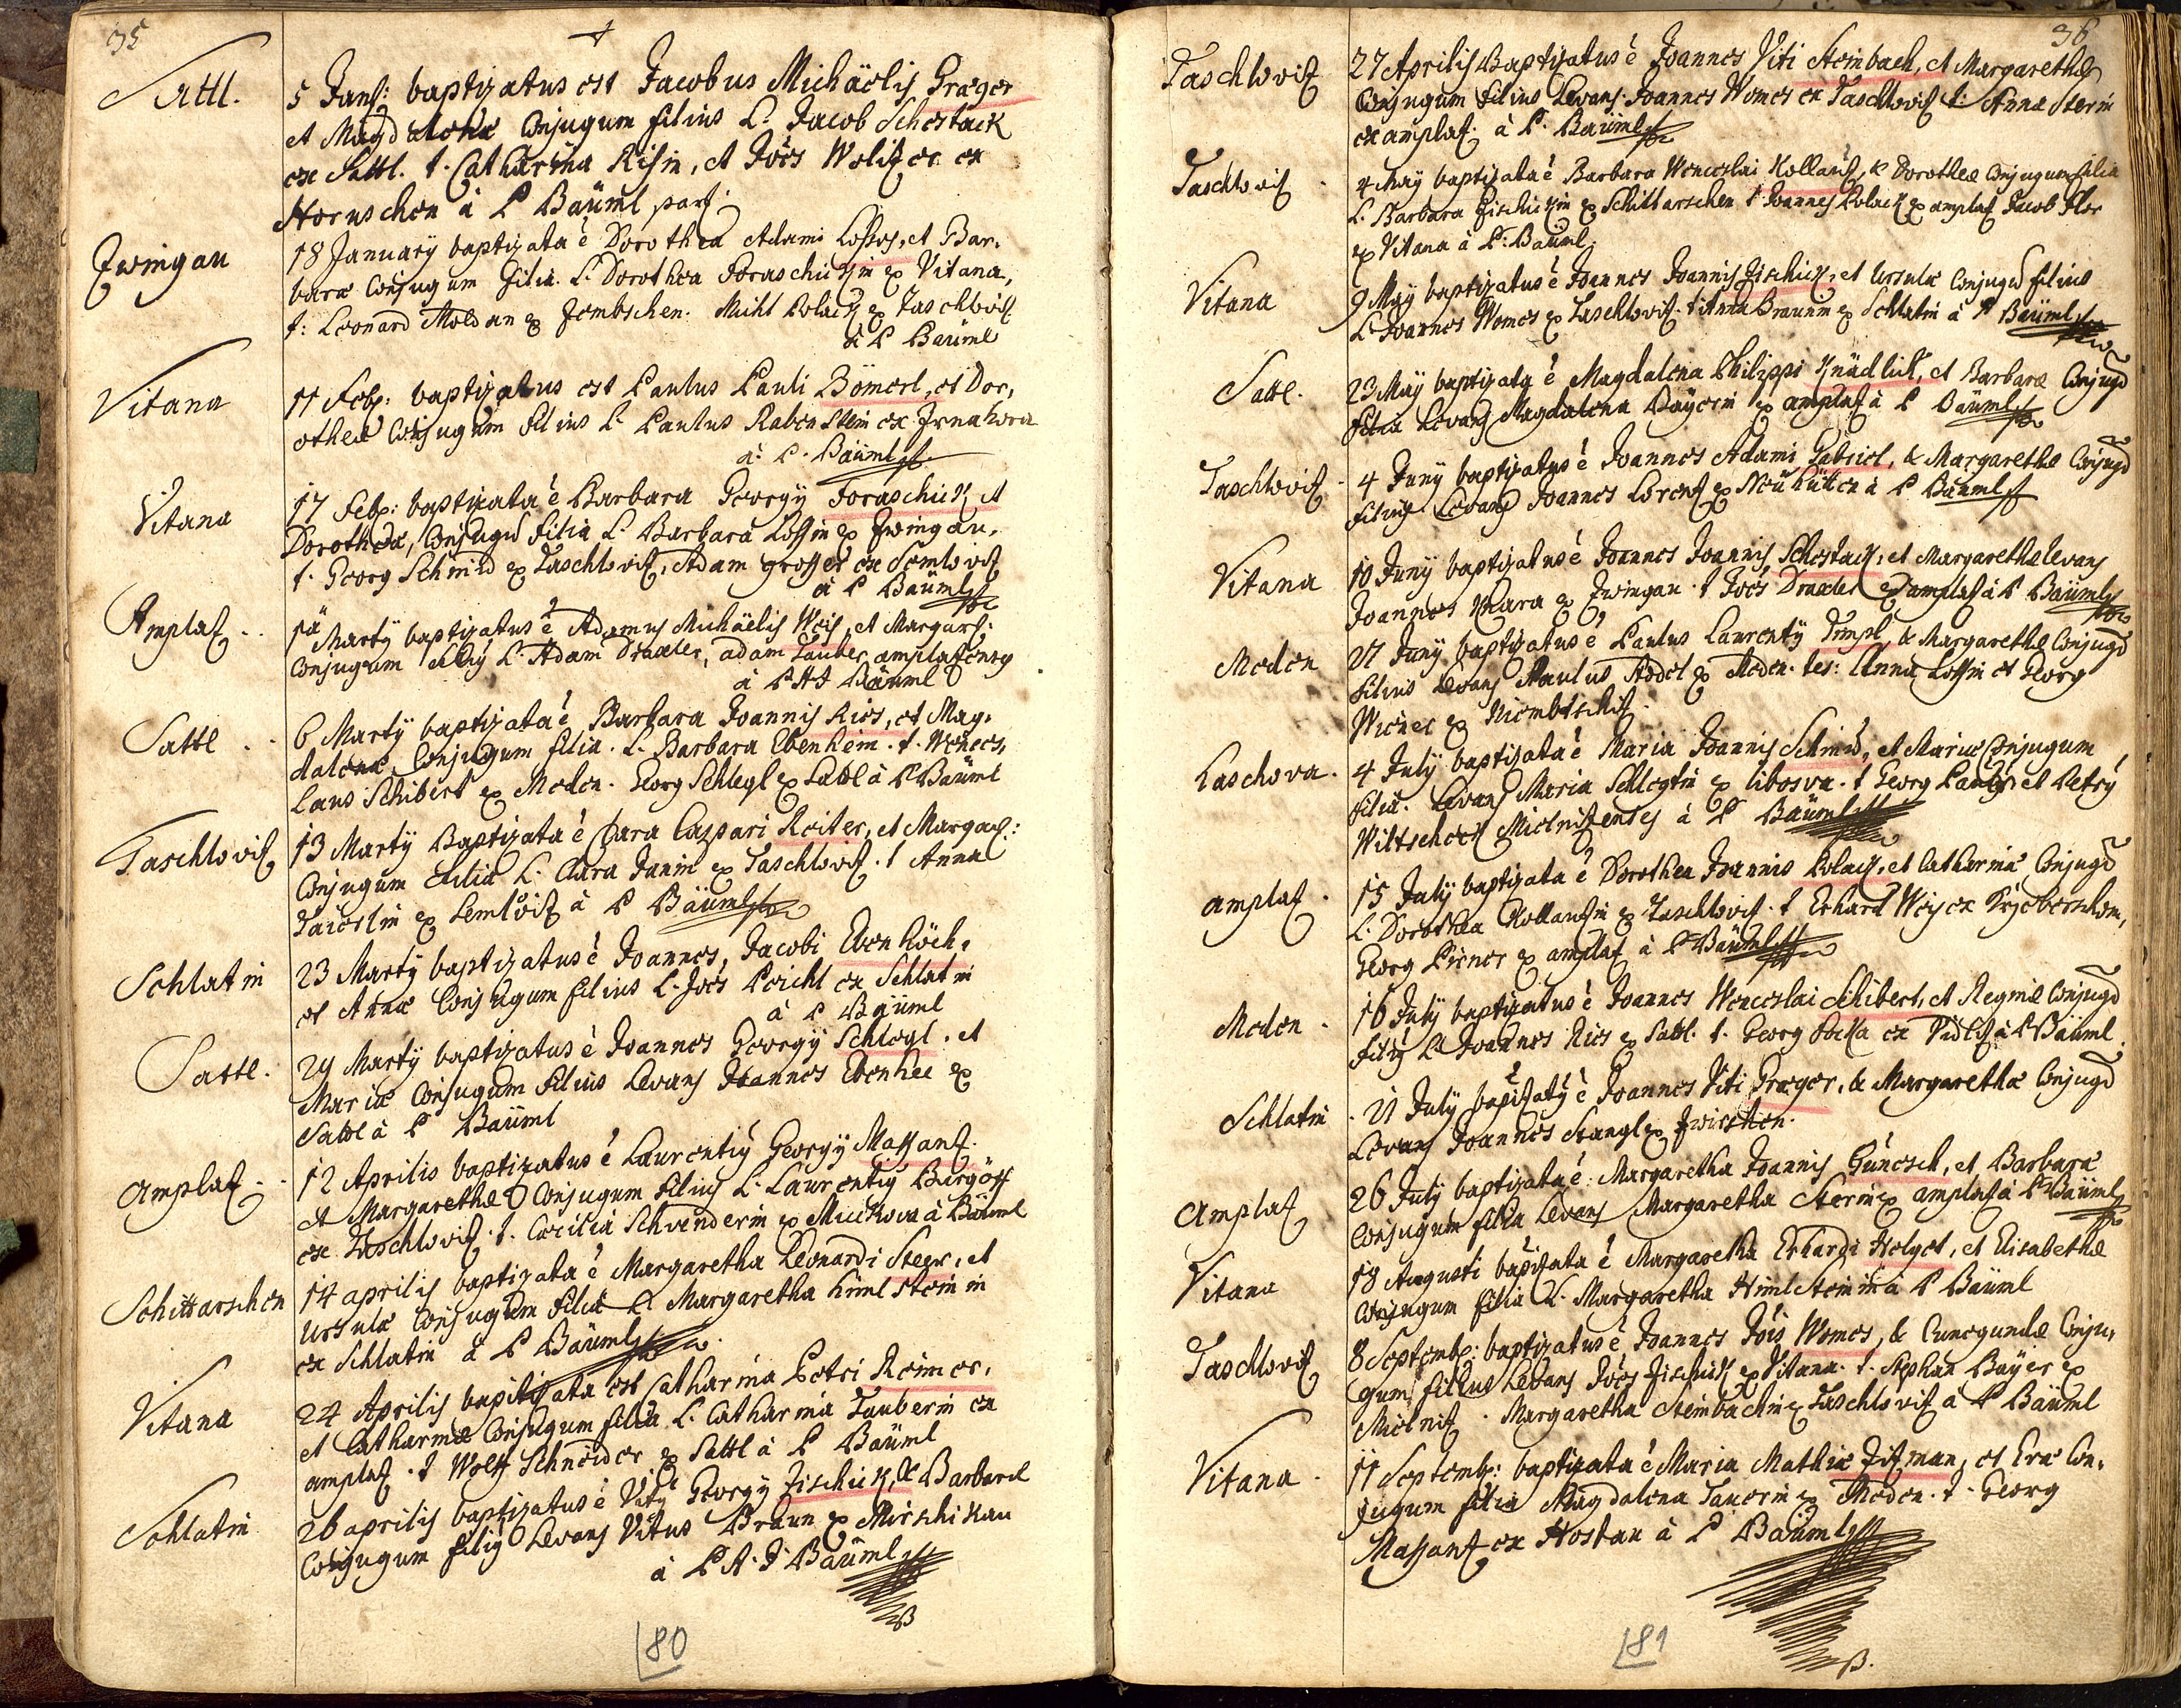 35
Sattl.
5 Janj: baptizatus est Jacobus Michäelis Præger
et Magdalenæ Conjugum filius L. Jacob Schestack
ex Sattl. t. Catharina Risin, et Joes Wolizer ex
Hornschen à P Bäuml par:
Zwingau
18 January baptizata è Dorothea Adami Losses, et Bar,
baræ Conjugum filia. L. Dorothea Foraschickin ex Vitana,
t: Leonard Moldan ex Zembschen. Michl Polack ex Taschlowiz
à P Bäuml
Vitana
11 Feb: baptizatus est Paulus Pauli Bömerl, et Dor,
otheæ Conjugum filius L. Paulus Rabenstein ex Zrnahora
à P. Bäuml
Vitana
17 Feb: baptizata è Barbara Georgÿ Foraschick et
Dorotheæ, Conjugũ filia L. Barbara Lossin ex Zwingau,
t. Georg Schmid ex Taschlowiz, Adam grosser ex Semlowiz
à P Bäuml
Amplaz
1ä Martÿ baptizatus è Adamus Michäelis Weis, et Margar:
Conjugum filius L. Adam Draxler, adam Tauber amplazensis
à P A J Bäuml
Sattl
6 Martÿ baptizata è Barbara Joannis Ries, et Mag,
dalenæ Conjugum filia. L. Barbara Ebenheim. t. Wences,
laus Schibert ex Meden. Georg Schlegl ex Sattl à P Bäuml
Taschlowiz
13 Martÿ Baptizata è Clara Caspari Reiter, et Margar:
Conjugum filia L. Clara Janin ex Taschlowiz. t Anna
Taierlin ex Semlowiz à P Bäuml
Schlatin
23 Martÿ baptizatus è Joannes, Jacobi Ebenhöch,
et Annæ Conjugum filius L. Joes Peichl ex Schlatin
à P Bäuml
Sattl.
29 Martÿ baptizatus è Joannes Georgÿ Schlegl, et
Mariæ Conjugum filius Levans Joannes Ebenhee ex
Sattl à P Bäuml
amplaz
12 Aprilis baptizatus è Laurentiÿ Georgÿ Massanz
et Margarethæ Conjugum filius L. Laurentiÿ Burgöss
ex Taschlowiz. t. Cæcilia Schvenderin ex Mirkowa à Bäuml
Schittarschen
14 aprilis baptizata è Margaretha Leonardi Steer, et
Ursulæ Conjugum filia L. Margaretha himlstein in
ex Schlatin à P Bäuml
Vitana
24 Aprilis baptizata est Catharina Petri Reimer,
et Catharinæ Conjugum filia L. Catharina Tauberin ex
amplaz. t Wolff Schneider ex Sattl à P Bäuml
Schlatin
26 aprilis baptizatus è Vitÿ Georgÿ Zischick, & Barbaræ
Conjugum filius Levans Vitus Braun ex Mirschikau
à P A. J. Bäuml
80
36
Taschlowiz
27 Aprilis Baptizatus è Joannes Viti Steinbach, et Margarethæ
Conjugum filius Levans Joannes Womes ex Taschlowiz t: Anna Sterin
ex amplaz. à P. Bäuml
Taschlowiz
4 Maÿ baptizata è Barbara Wenceslai Kollanz, & Dorotheæ Conjugum filia
L. Barbara Zischickin ex Schittarschen t Joannes Polack ex amplaz Jacob Flor
ex Vitana à P. Bäuml.
Vitana
9 Maÿ baptizatus è Joannes Joannis Zischick, et Ursulæ Conjugũ filius
L. Joannes Womes ex Taschlowiz. t Anna Braunin ex Schlatin à P Bäuml
Sattl.
23 Maÿ baptizata è Magdalena Philippi Knädlick, et Barbaræ Conjugũ
filia Levans Magdalena Baÿerin ex amplaz à P Bäuml
Taschlowiz
4 Junÿ baptizatus è Joannes Adami Gabriel, & Margarethæ Conjugũ
filius Levans Joannes Lorenz ex Neühütten à P Bäuml
Vitana
10 Junÿ baptizatus è Joannes Joannis Schestack, et Margarethæ levans
Joannes Mara ex Zwingau. t Joes Draxler ex amplaz à P Bäuml
Meden
21 Junÿ baptizatus è Paulus Laurentÿ Dimpl, & Margarethæ Conjugũ
filius Levans Paulus Addel ex Meden. tes: Anna Lossin et Georg
Wiener ex Niembtschiz.
Laschova.
4 Julÿ baptizata è Maria Joannis Schmid, et Mariæ Conjugum
filia. Levans Maria Schlegtin ex libosva. t Georg Pauly et Petrÿ
Wiltscheck Mielnizenses à P Bäuml
amplaz.
15 Julÿ baptizata è Dorothea Joannis Polack, et Catharinæ Conjugũ
L. Dorothea Kollanzin ex Taschlowiz. t Erhard Weis ex
Georg Pirner ex amplaz à P Bäuml
Meden.
16 Julÿ baptizatus è Joannes Wenceslai Schibert, et Reginæ Conjugũ
filius L. Joannes Ries ex Sattl. t. Georg Pocka ex Vidliz à P Bäuml.
Schlatin
21 Julÿ baptizatus è Joannes Viti Præger, & Margarethæ Conjugũ
Levans Joannes Stangl ex Zwirschen.
Amplaz
26 Julÿ baptizata è Margaretha Joannis Günesch, et Barbaræ
Conjugum filia Levans Margaretha Sterin ex amplaz à P Bäuml
Vitana
18 Augusti baptizata è Margaretha Erhardi Helget, et Elisabethæ
Conjugum filia L. Margaretha Himlstein in à P Bäuml
Taschlowiz
8 Septemb: baptizatus è Joannes Jois Womes, & Cunegundæ Conju,
gum filius Levans Joes Zischick ex Vitana. t. Stephan Baÿer ex
Mielniz. Margaretha Steinbachin ex Taschlowiz à P Bäuml
Vitana.
11 Septemb: baptizata è Maria Mathiæ Zitman, et Evæ Con,
jugum filia Magdalena Tanerin ex Meden. t. Georg
Massanz ex Hostau à P Bäuml
81